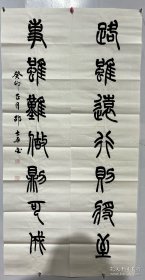 路雖遠行則將至
事雖難做則可成
癸卯 月 书